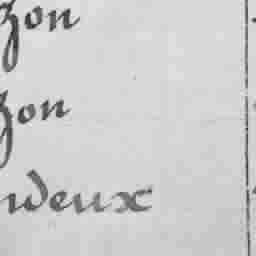 zon
zon
ndeux